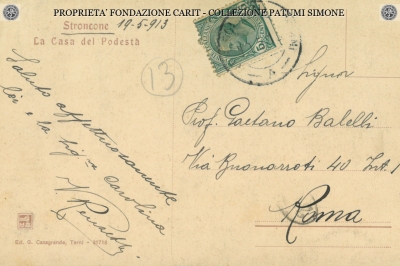 PROPRIETA' FONDAZIONE CARIT - COLLEZIONE PATUMI SIMONE
Stroncone 19-5-913
La Casa del Podestà
13
Saluto affettuosamente
lei e la sig.na Carolina
Signor
Prof. Gaetano Balelbi
Via Buonarroti 40 Int. 1
Roma